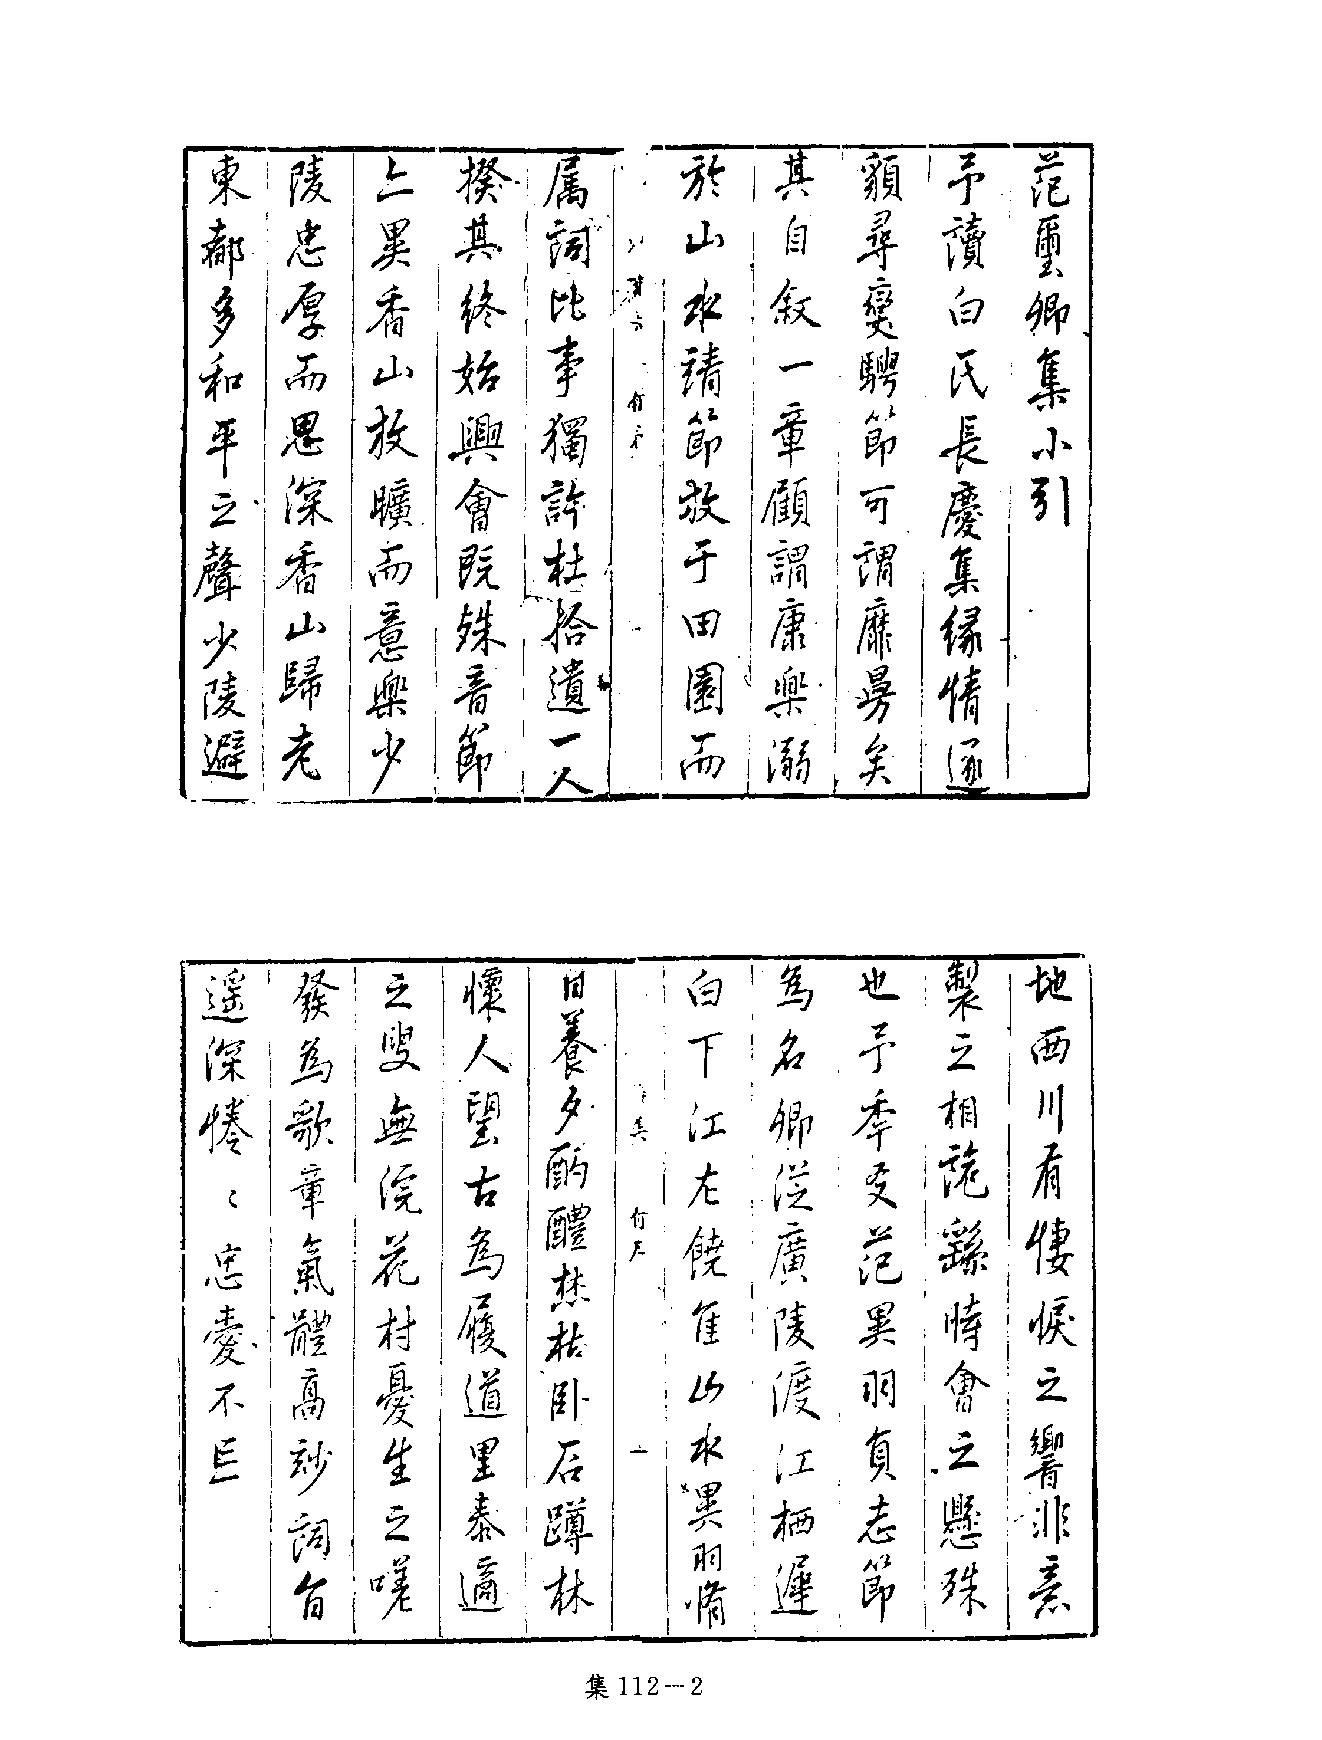 范璽卿集小引
予讀白氏長慶集緣情逐
顡尋夔騁節可謂靡曼矣
其自叙一章顧謂康樂溺
於山水靖節放于田園而
属詞比事獨許杜拾遺一人
揆其終始興會既殊音節
亦異香山放曠而意樂少
陵忠厚而思深香山歸老
東都多和平之聲少陵避
地西川有悽悷之響非意
製之相詭繇時會之懸殊
也予季父范異羽負志節
為名卿從廣陵渡江栖遲
白下江左饒佳山水異羽脩
日養夕酌醴焚枯卧石蹲林
懷人望古為履道里泰適
之叟無浣花村憂生之嗟
發為歌章氣體高玅詞旨
遥深惓〻忠愛不忘
集 112－2